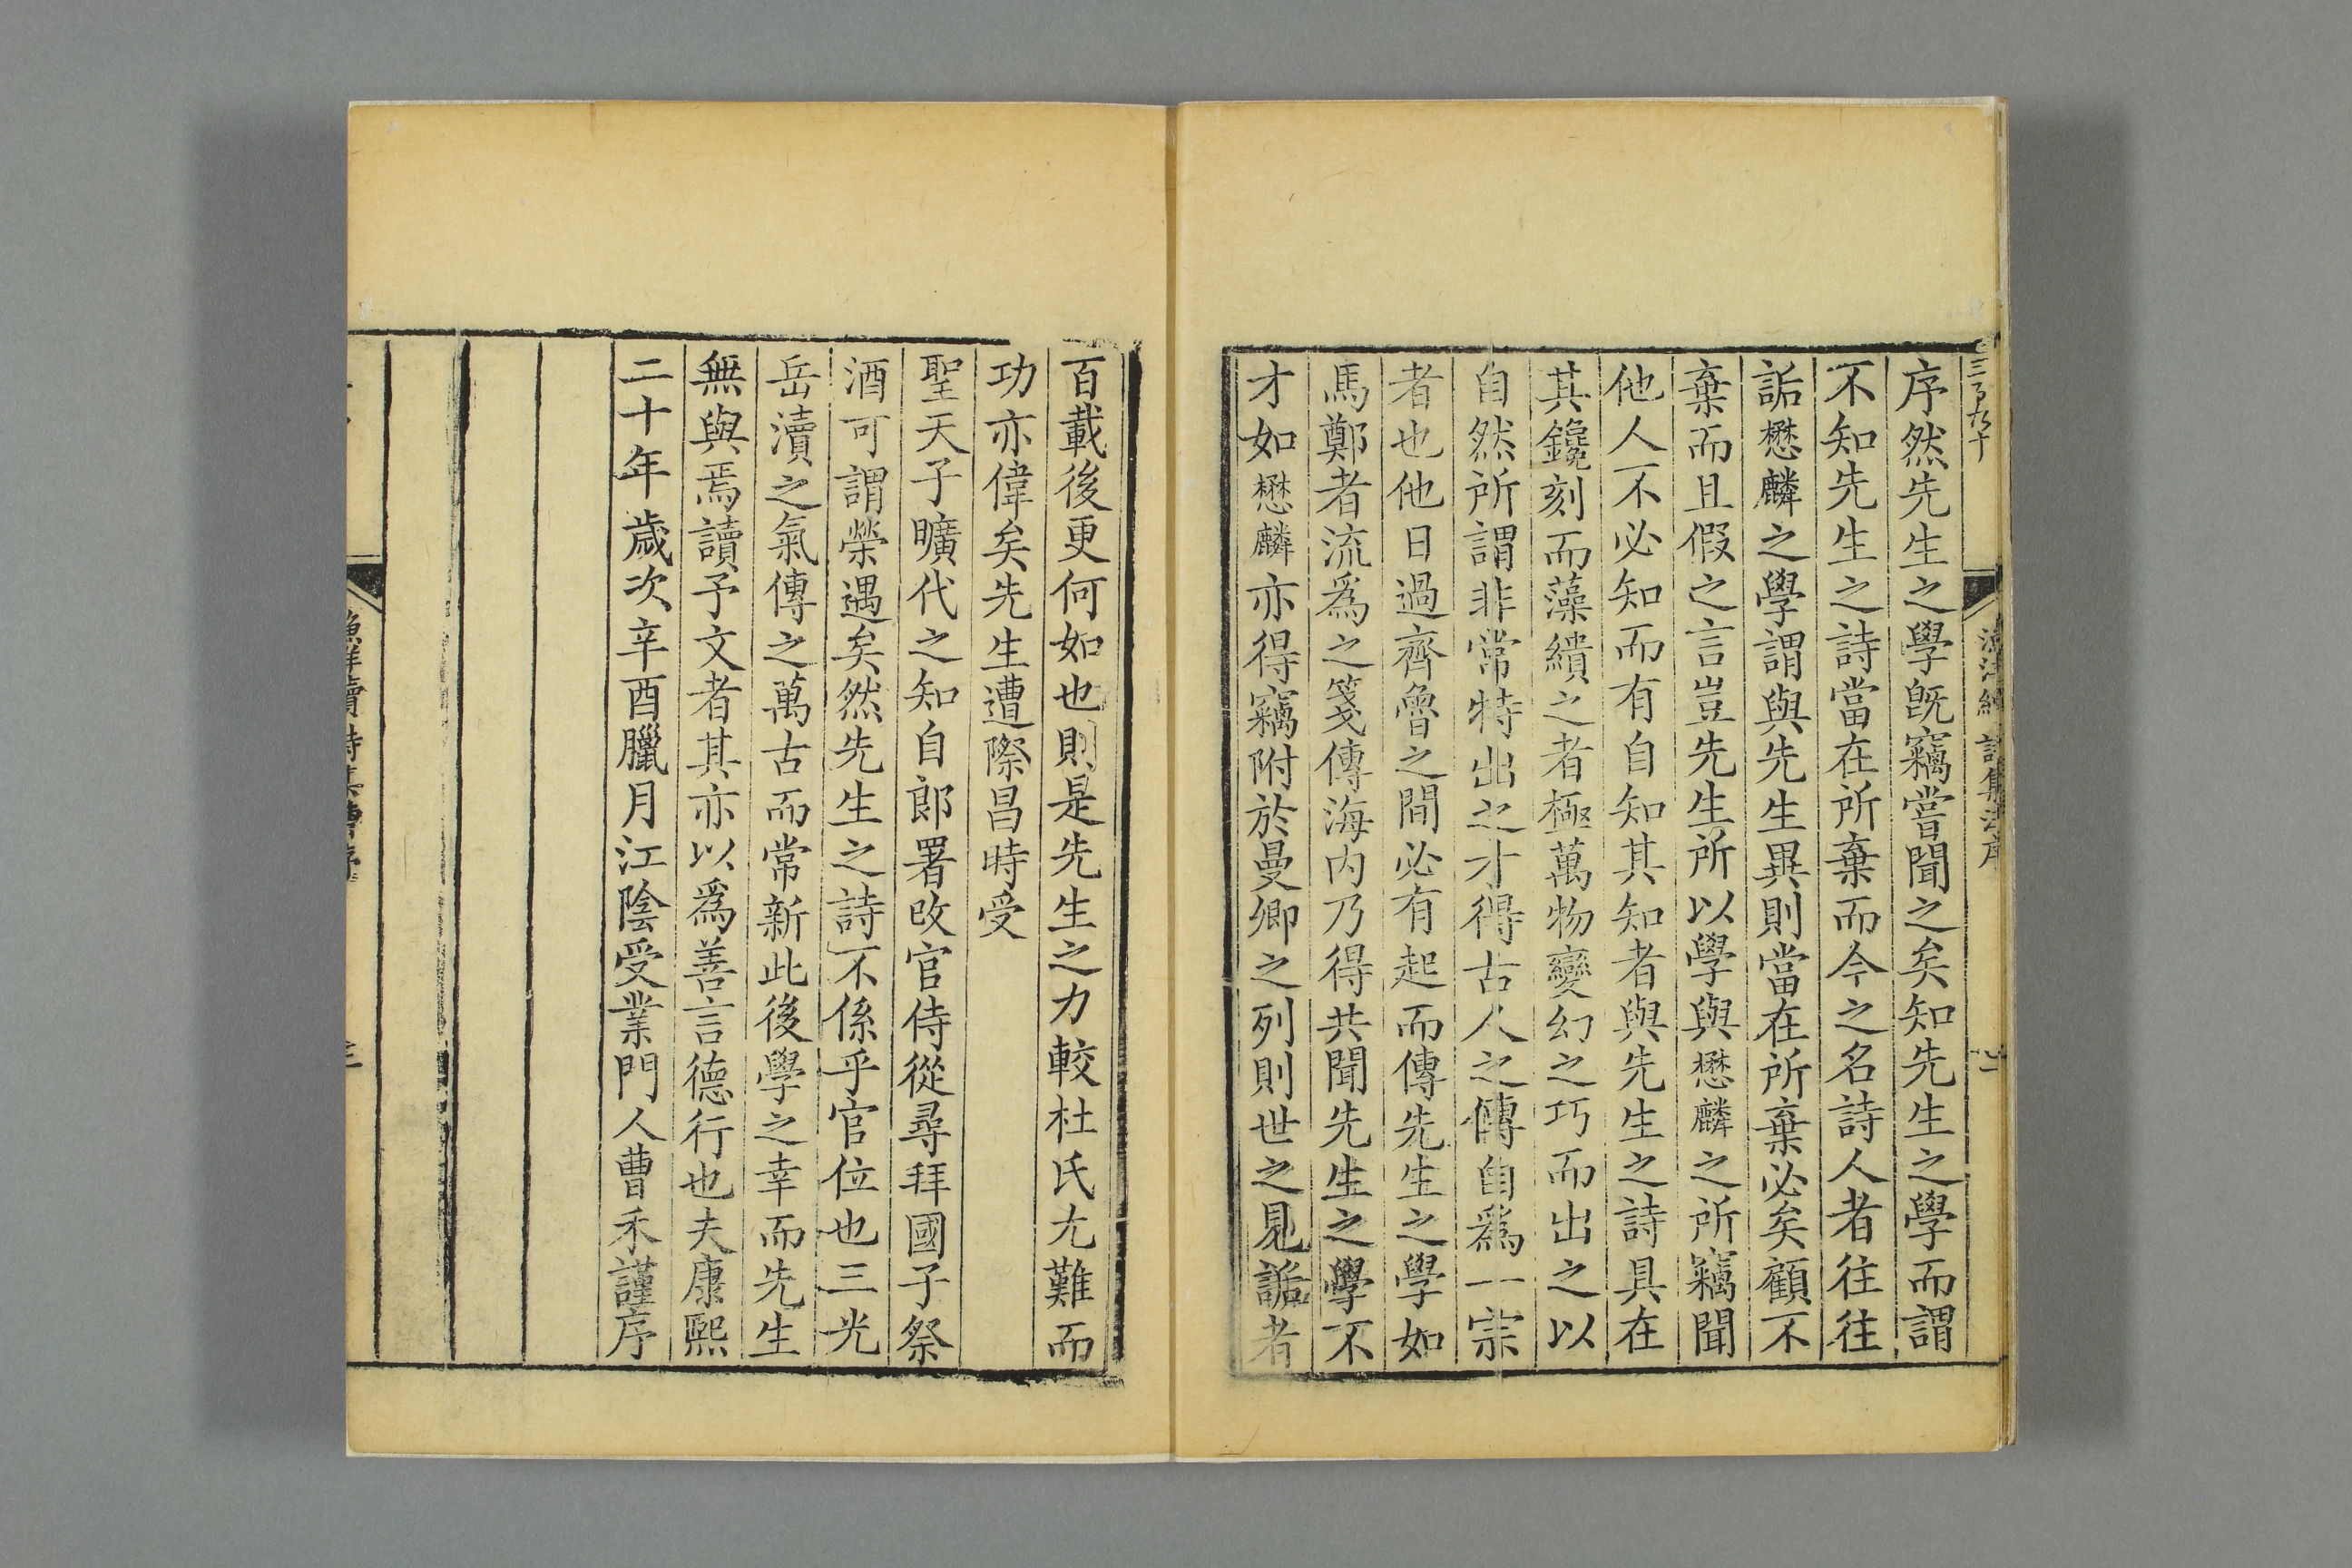 序然先生之學旣竊嘗聞之矣知先生之學而謂
不知先生之詩當在所棄而今之名詩人者往往
詬懋麟之學謂與先生異則當在所棄必矣顧不
棄而且假之言豈先生所以學與懋麟之所竊聞
他人不必知而有自知其知者與先生之詩具在
其鑱刻而藻繢之者極萬物變幻之巧而出之以
自然所謂非常特出之才得古人之傳自爲一宗
者也他日過齊魯之間必有起而傳先生之學如
馬鄭者流爲之箋傳海内乃得共聞先生之學不
才如懋麟亦得竊附於曼卿之列則世之見詬者
百載後更何如也則是先生之力較杜氏尢難而
功亦偉矣先生遭際昌時受
聖天子曠代之知自郎署改官侍從尋拜國子祭
酒可謂榮遇矣然先生之詩不係乎官位也三光
岳瀆之氣傳之萬古而常新此後學之幸而先生
無與焉讀予文者其亦以爲善言德行也夫康熙
二十年歲次辛酉臘月江陰受業門人曹禾謹序